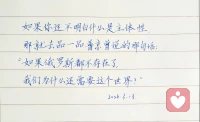 如果你还不明白什么是主体性
那就去品一品普京曾说的那句话:
"如果俄罗斯都不存在了
我们为什么还需要这个世界?"